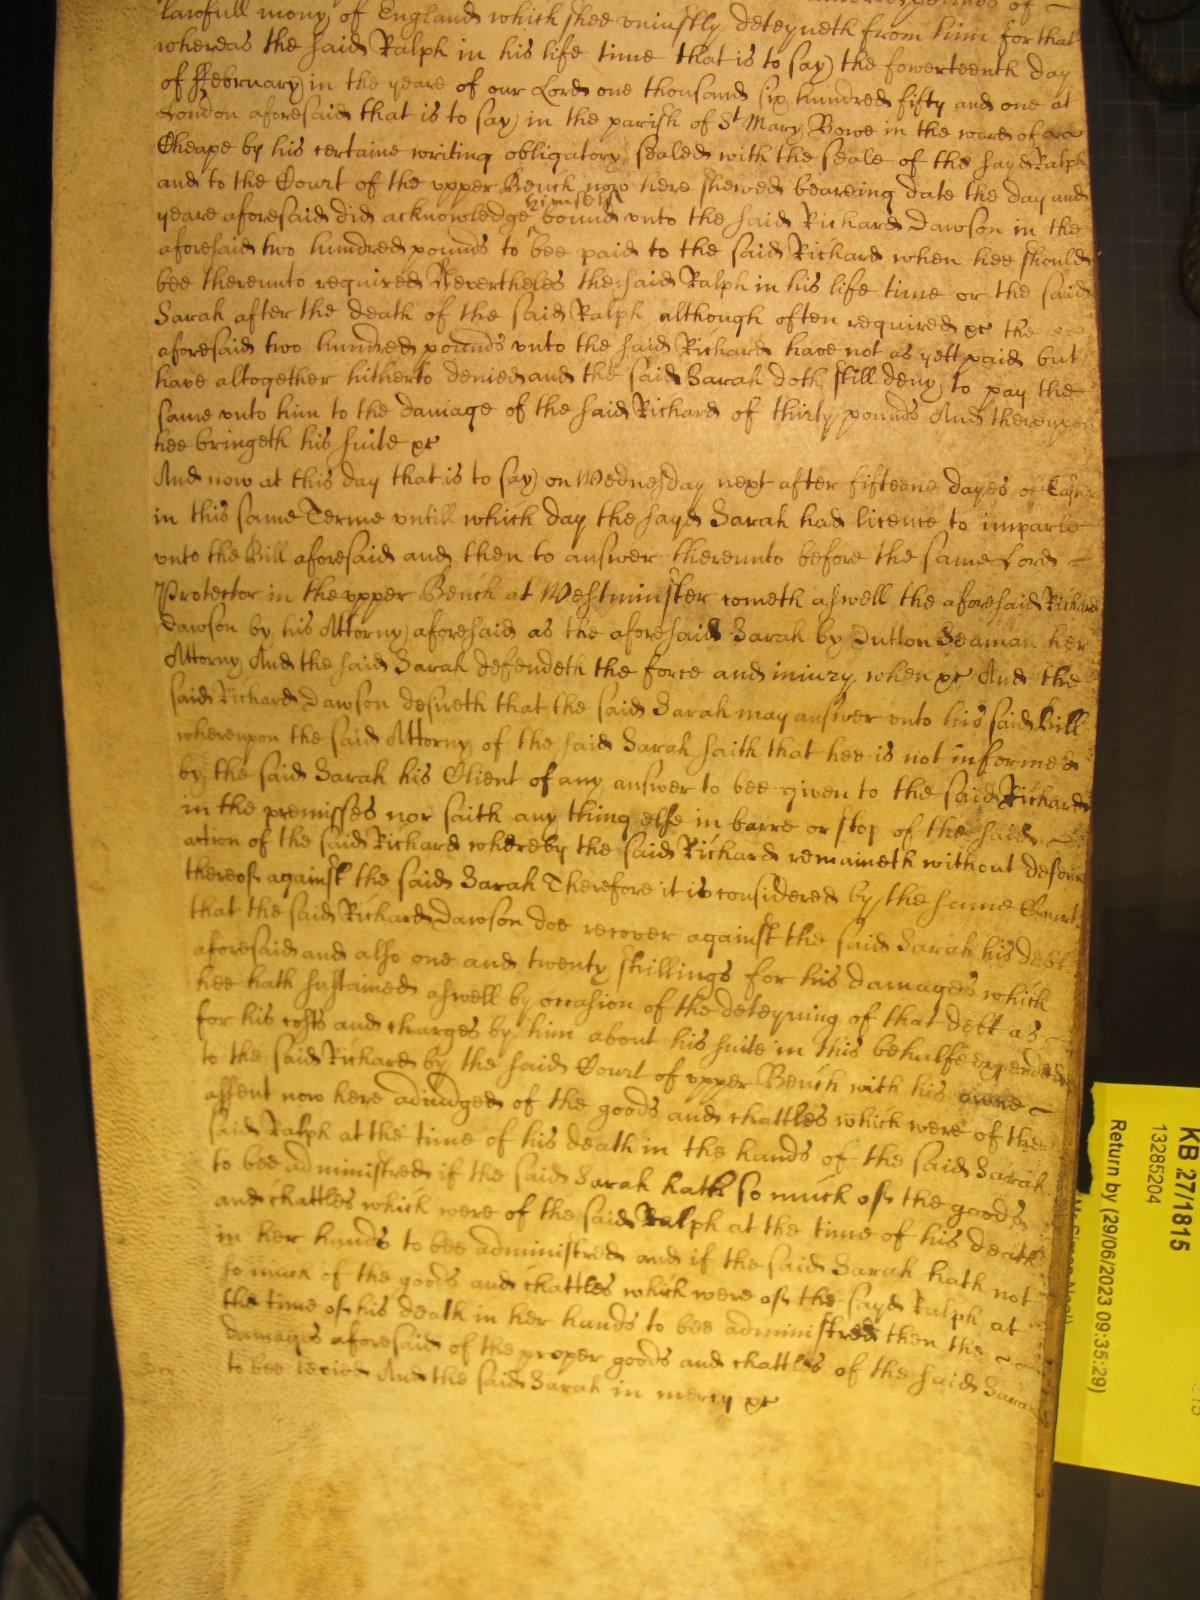 pounds of
lawfull mony of England which shee uniustly deteyneth from him for that
whereas the said Ralph in his life time that is to say the fowerteenth day
of ffebruary in the yeare of our Lord one thousand six hundred fifty and one at
London aforesaid that is to say in the parish of St Mary Bowe in the ward of
Cheape by his certaine writing obligatory sealed with the seale of the sayd Ralph
and to the Court of the upper Bench now here shewed beareing date the day and
yeare aforesaid did acknowledge himself bound unto the said Richard Dawson in the
aforesaid two hundred pounds to bee paid to the said Richard when hee should
bee thereunto required Nevertheles the said Ralph in his life time or the said
Sarah after the death of the said Ralph although often required &c the
aforesaid two hundred pounds unto the said Richard have not as yett paid but
have altogether hitherto denied and the said Sarah doth still deny to pay the
same unto him to the damage of the said Richard of thirty pounds And thereupon
hee bringeth his suite &c
And now at this day that is to say on Wednesday next after fifteene dayes of
in this same Terme untill which day the sayd Sarah had licence to imparle
unto the Bill aforesaid and then to answer thereunto before the same Lord
Protector in the upper Bench at Westminster cometh aswell the aforesaid Richard
Dawson by his Attorny aforesaid as the aforesaid Sarah by Dutton Seaman her
Attorny And the said Sarah defendeth the force and iniury when &c And the
said Richard Dawson desireth that the said Sarah may answer unto his said Bill
whereupon the said Attorny of the said Sarah saith that hee is not informed
by the said Sarah his Client of any answer to bee given to the said Richard
in the premisses nor saith any thing else in barre or stop of the said
action of the said Richard whereby the said Richard remaineth without defence
thereof against the said Sarah Therefore it is considered by the same Court
that the said Richard Dawson doe recover against the said Sarah his debt
aforesaid and also one and twenty shillings for his damages which
hee hath sustained aswell by occasion of the deteyning of that debt as
for his costs and charges by him about his suite in this behalfe expended
to the said Richard by the said Court of upper Bench with his owne
assent now here adiudged of the goods and chattles which were of the
said Ralph at the time of his death in the hands of the said Sarah
to bee administred if the said Sarah hath so much of the goods
and chattles which were of the said Ralph at the time of his death
in her hands to bee administred and if the said Sarah hath not
so much of the goods and chattles which were of the sayd Ralph at
the time of his death in her hands to bee administred then the
damages aforesaid of the proper goods and chattles of the said Sarah
to bee levied And the said Sarah in mercy &c
KB 27/1815
13285204
Return by (29/06/2023 09:35:29)